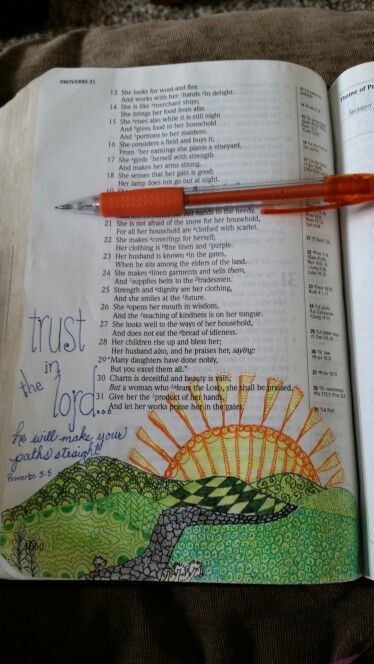 PROVERBS 31
13 She looks for wool and flax
And works with her hands in delight.
14 She is like merchant ships;
She brings her food from afar.
15 She rises also while it is still night
And gives food to her household
And portions to her maidens.
16 She considers a field and buys it;
From her earnings she plants a vineyard.
17 She girds herself with strength
And makes her arms strong.
18 She senses that her gain is good;
Her lamp does not go out at night.
her hands to the needy.
21 She is not afraid of the snow for her household,
For all her household are clothed with scarlet.
22 She makes coverings for herself;
Her clothing is fine linen and purple.
23 Her husband is known in the gates,
When he sits among the elders of the land.
24 She makes linen garments and sells them,
And supplies belts to the tradesmen.
25 Strength and dignity are her clothing,
And she smiles at the future.
26 She opens her mouth in wisdom,
And the teaching of kindness is on her tongue.
27 She looks well to the ways of her household,
And does not eat the bread of idleness.
28 Her children rise up and bless her;
Her husband also, and he praises her, saying:
29 "Many daughters have done nobly,
But you excel them all."
30 Charm is deceitful and beauty is vain,
But a woman who fears the LORD, she shall be praised.
31 Give her the product of her hands,
And let her works praise her in the gates.
trust
in
the
lord...
he will make your
paths straight
Proverbs 3:5
Theme of P